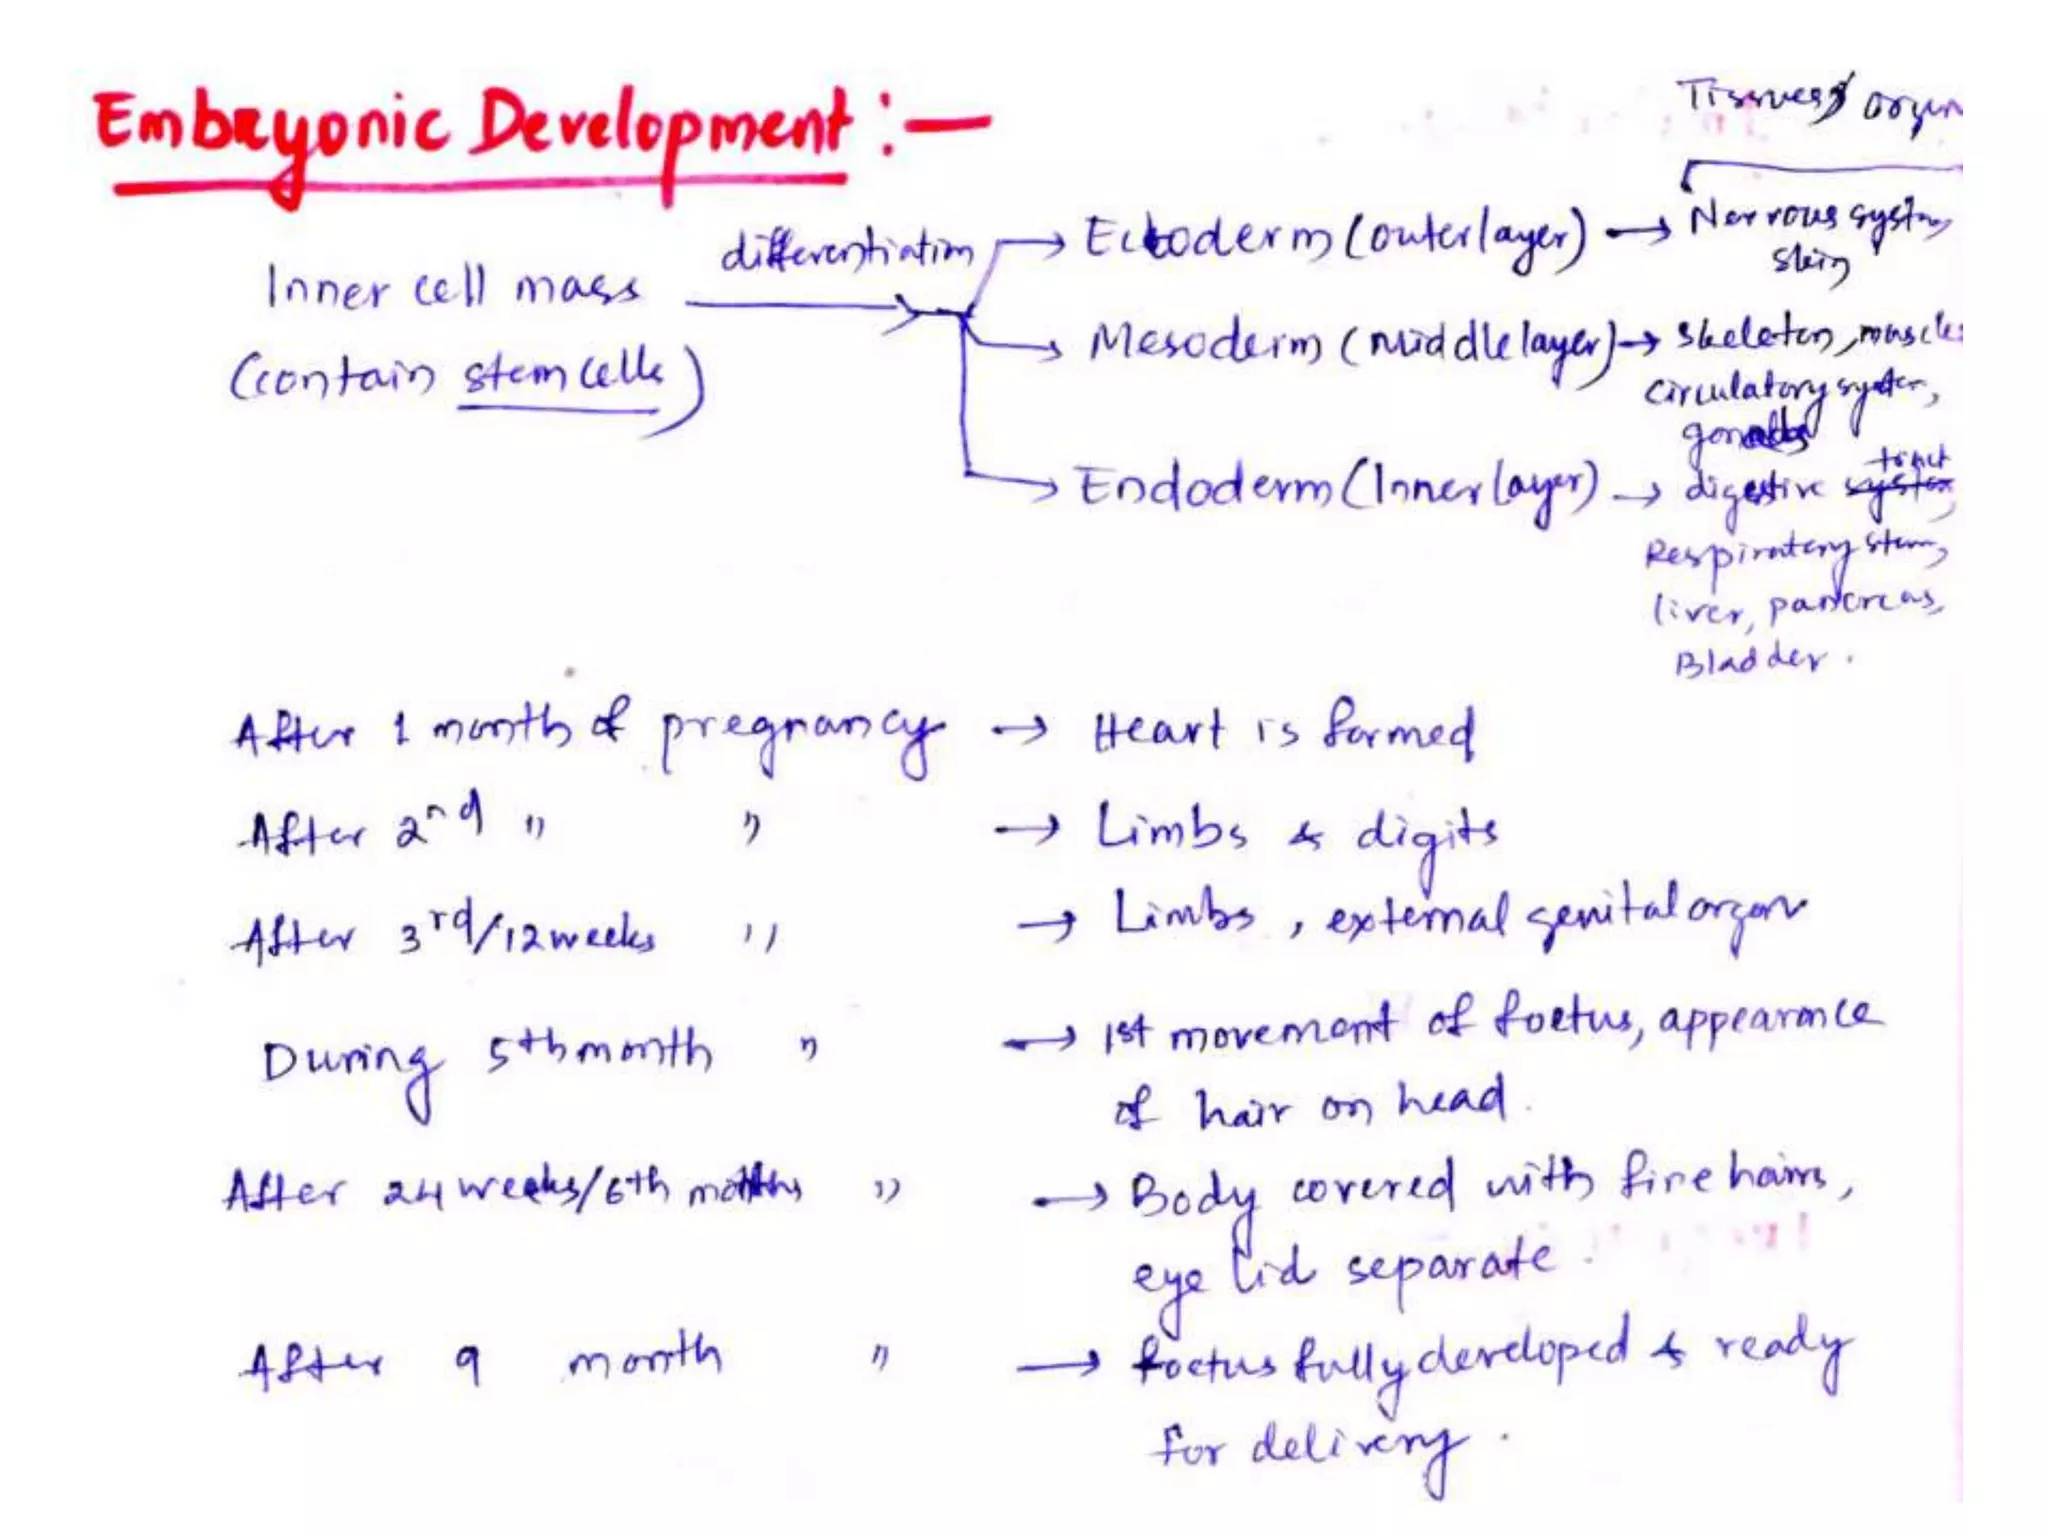 Embryonic Development :-
Tissues / organ
Inner cell mass
(contain stem cells)
differentiation
Ectoderm (outer layer) → Nervous system,
skin
Mesoderm (Middle layer) → Skeleton, muscles
Circulatory system,
gonads
Endoderm (Inner layer) → digestive tract
Respiratory stem,
liver, pancreas,
Bladder.
After 1 month of pregnancy → Heart is formed
After 2nd " " → Limbs & digits
After 3rd/12 weeks " → Limbs, external genital organ
During 5th month " → 1st movement of foetus, appearance
of hair on head.
After 24 weeks/6th months " → Body covered with fine hairs,
eye lid separate.
After 9 month " → foetus fully developed & ready
for delivery.